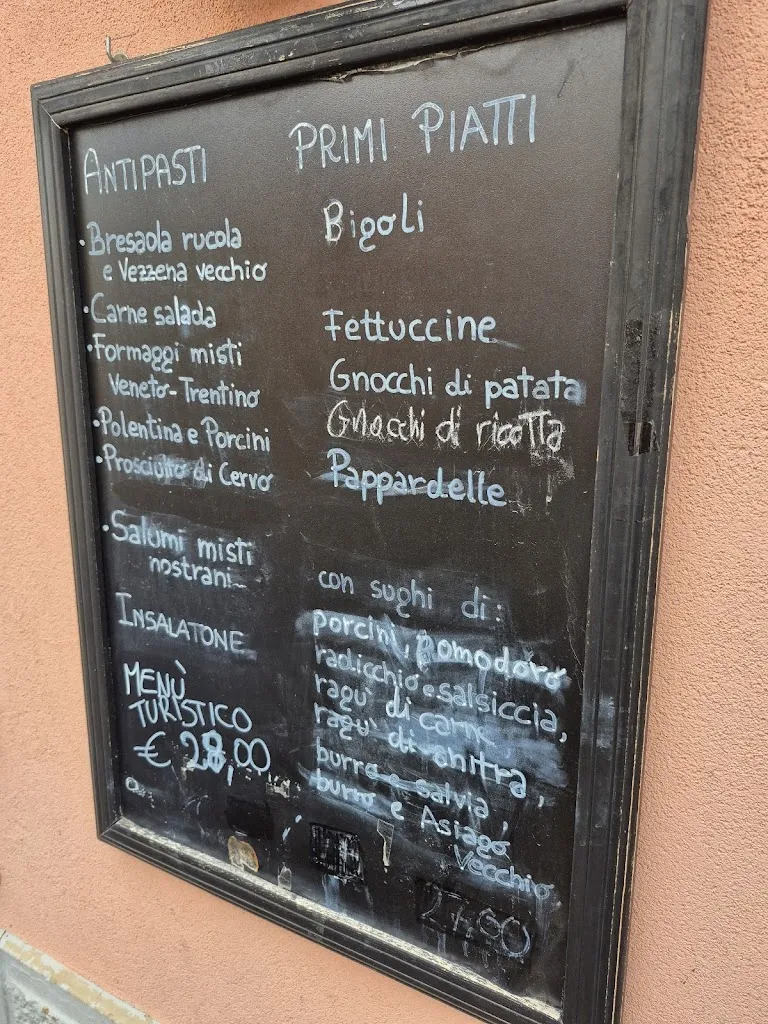 ANTIPASTI
• Bresaola rucola
e Vezzena vecchio
• Carne salada
• Formaggi misti
Veneto-Trentino
• Polentina e Porcini
• Prosciutto di Cervo
• Salumi misti
nostrani
INSALATONE
MENÙ
TURISTICO
€ 28,00
PRIMI PIATTI
Bigoli
Fettuccine
Gnocchi di patata
Gnocchi di ricotta
Pappardelle
con sughi di:
porcini, pomodoro
radicchio e salsiccia,
ragù di carne
ragù di anitra,
burro e salvia,
burro e Asiago
Vecchio